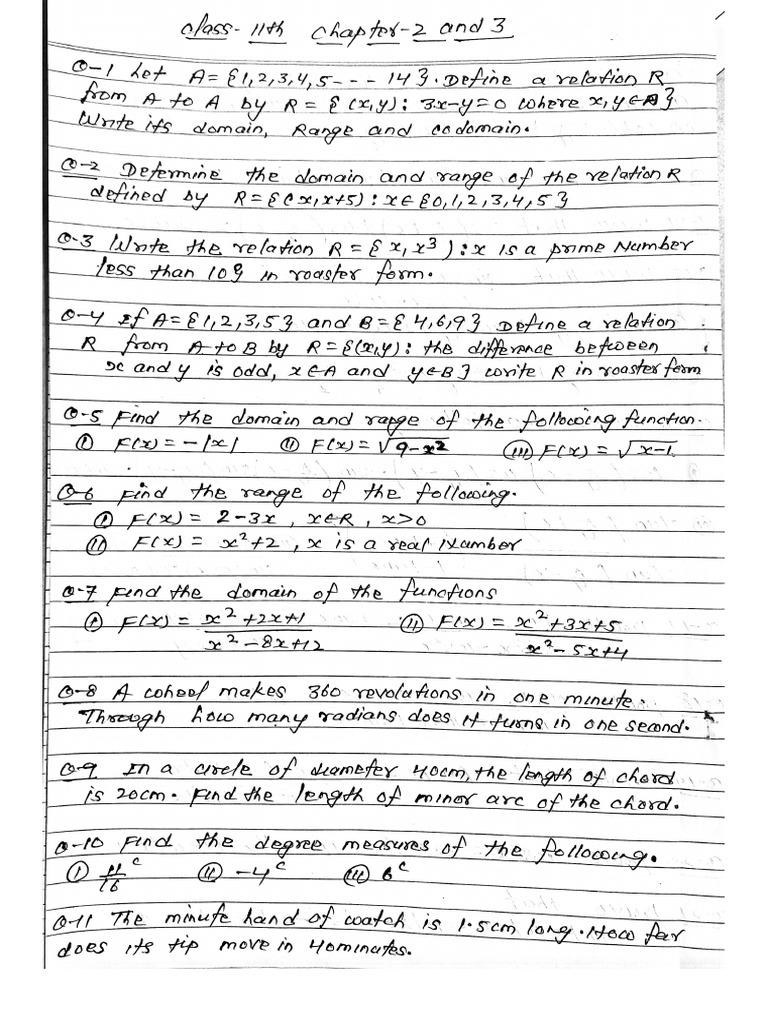 Class-11th Chapter-2 and 3
Q-1 Let A={1,2,3,4,5---14}. Define a relation R
from A to A by R={(x,y): 3x-y=0 where x,y∈A}
Write its domain, Range and codomain.
Q-2 Determine the domain and range of the relation R
defined by R={(x,x+5): x∈{0,1,2,3,4,5}
Q-3 Write the relation R={x,x³): x is a prime Number
less than 10} in roaster form.
Q-4 If A={1,2,3,5} and B={4,6,9} Define a relation
R from A to B by R={(x,y): the difference between
x and y is odd, x∈A and y∈B} write R in roaster form
Q-5 Find the domain and range of the following function.
(i) F(x)=-|x| (ii) F(x)=√9-x² (iii) F(x)=√x-1
Q-6 Find the range of the following.
(i) F(x) = 2-3x, x∈R, x>0
(ii) F(x) = x²+2, x is a real Number
Q-7 Find the domain of the functions
(i) F(x) = x²+2x+1 / x²-8x+12 (ii) F(x) = x²+3x+5 / x²-5x+4
Q-8 A wheel makes 360 revolutions in one minute.
Through how many radians does it turns in one second.
Q-9 In a circle of diameter 40cm, the length of chord
is 20cm. Find the length of minor arc of the chord.
Q-10 Find the degree measures of the following.
(i) 11/16 ᶜ (ii) -4ᶜ (iii) 6ᶜ
Q-11 The minute hand of watch is 1.5cm long. How far
does its tip move in 40minutes.